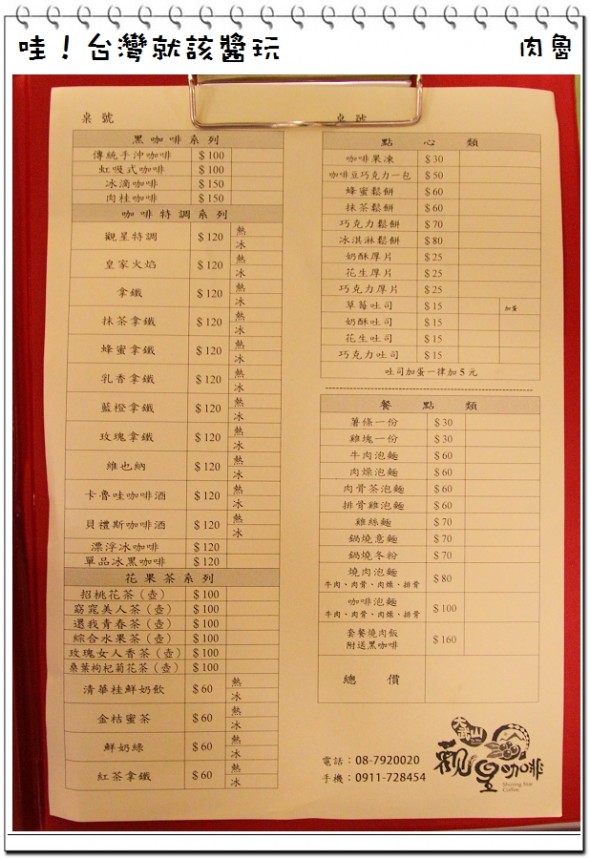 哇！台灣就該醬玩 肉魯
桌號
黑咖啡系列
傳統手沖咖啡 $100
虹吸式咖啡 $100
冰滴咖啡 $150
肉桂咖啡 $150
咖啡特調系列
觀星特調 $120 熱 冰
皇家火焰 $120 熱 冰
拿鐵 $120 熱 冰
抹茶拿鐵 $120 熱 冰
蜂蜜拿鐵 $120 熱 冰
乳香拿鐵 $120 熱 冰
藍橙拿鐵 $120 熱 冰
玫瑰拿鐵 $120 熱 冰
維也納 $120 熱 冰
卡魯哇咖啡酒 $120 熱 冰
貝禮斯咖啡酒 $120 熱 冰
漂浮冰咖啡 $120
單品冰黑咖啡 $120
花果茶系列
招桃花茶（壺） $100
窈窕美人茶（壺） $100
還我青春茶（壺） $100
綜合水果茶（壺） $100
玫瑰女人香茶（壺） $100
桑葉枸杞菊花茶（壺） $100
清華桂鮮奶飲 $60 熱 冰
金桔蜜茶 $60 熱 冰
鮮奶綠 $60 熱 冰
紅茶拿鐵 $60 熱 冰
桌號
點心類
咖啡果凍 $30
咖啡豆巧克力一包 $50
蜂蜜鬆餅 $60
抹茶鬆餅 $60
巧克力鬆餅 $70
冰淇淋鬆餅 $80
奶酥厚片 $25
花生厚片 $25
巧克力厚片 $25
草莓吐司 $15 加蛋
奶酥吐司 $15
花生吐司 $15
巧克力吐司 $15
吐司加蛋一律加5元
餐點類
薯條一份 $30
雞塊一份 $30
牛肉泡麵 $60
肉燥泡麵 $60
肉骨茶泡麵 $60
排骨雞泡麵 $60
雞絲麵 $70
鍋燒意麵 $70
鍋燒冬粉 $70
燒肉泡麵 $80
牛肉、肉骨、肉燥、排骨
咖啡泡麵 $100
牛肉、肉骨、肉燥、排骨
套餐燒肉飯 $160
附送黑咖啡
總價
電話：08-7920020
手機：0911-728454
大武山
觀星咖啡
Shining Star
Coffee